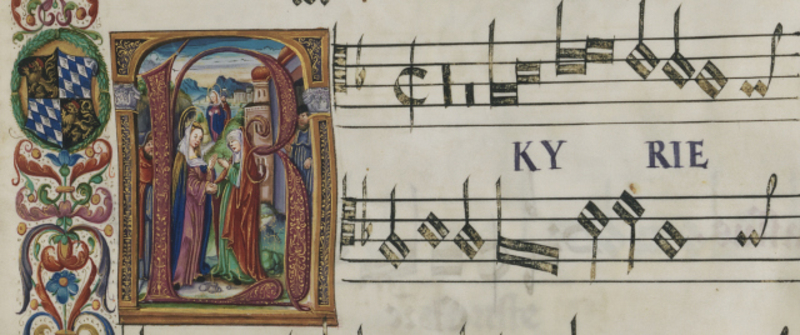 KY RIE